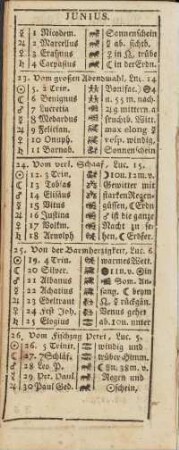 JUNIUS.
☿ 1 Nicodem. Sonnenschein
♃ 2 Marcellus ab. sichtb.
♀ 3 Erasmus in ♌. trübe
♄ 4 Carpasius ☾ in der Erdn.
23. Vom großen Abendmahl. Luc. 14
☉ 5. 2 Trin. Bonifac.
☽ 6 Benignus n. 53 m. nach
♂ 7 Lucretia mittern. a
☿ 8 Medardus fruchtb. Witt.
♃ 9 Felician. max elong
♀ 10 Onuph. vesp. windig,
♄ 11 Barnab. Sonnenschein
24. Vom verl. Schaaf, Luc. 15.
☉ 12. 3 Trin. 10n. 12m. v.
☽ 13 Tobias Gewitter mit
♂ 14 Elisäus starken Regen
☿ 15 Vitus güssen, ☾ Erdn
♃ 16 Justina ist die ganze
♀ 17 Volkm. Nacht zu se-
♄ 18 Arnolph hen, ☾ Erdfer.
25. Von der Barmherzigkeit, Luc. 6.
☉ 19. 4 Trin. warmes Wett.
☽ 20 Silver. 11n. v. ☉ in
♂ 21 Albanus Som. Anfang
☿ 22 Achatius beym
♃ 23 Edeltraut rückgän.
♀ 24 Fest Joh. Venus gehet
♄ 25 Elogius ab. 10n. unter
26. Vom Fischzug Petri, Luc. 5.
☉ 26. 5 Trinit. windig und
☽ 27. 7Schläf. trüber Himm.
♂ 28 Leo P. 5n. 38m. v.
☿ 29 Pet. Paul Regen und
♃ 30 Paul Ged. ☉schein,